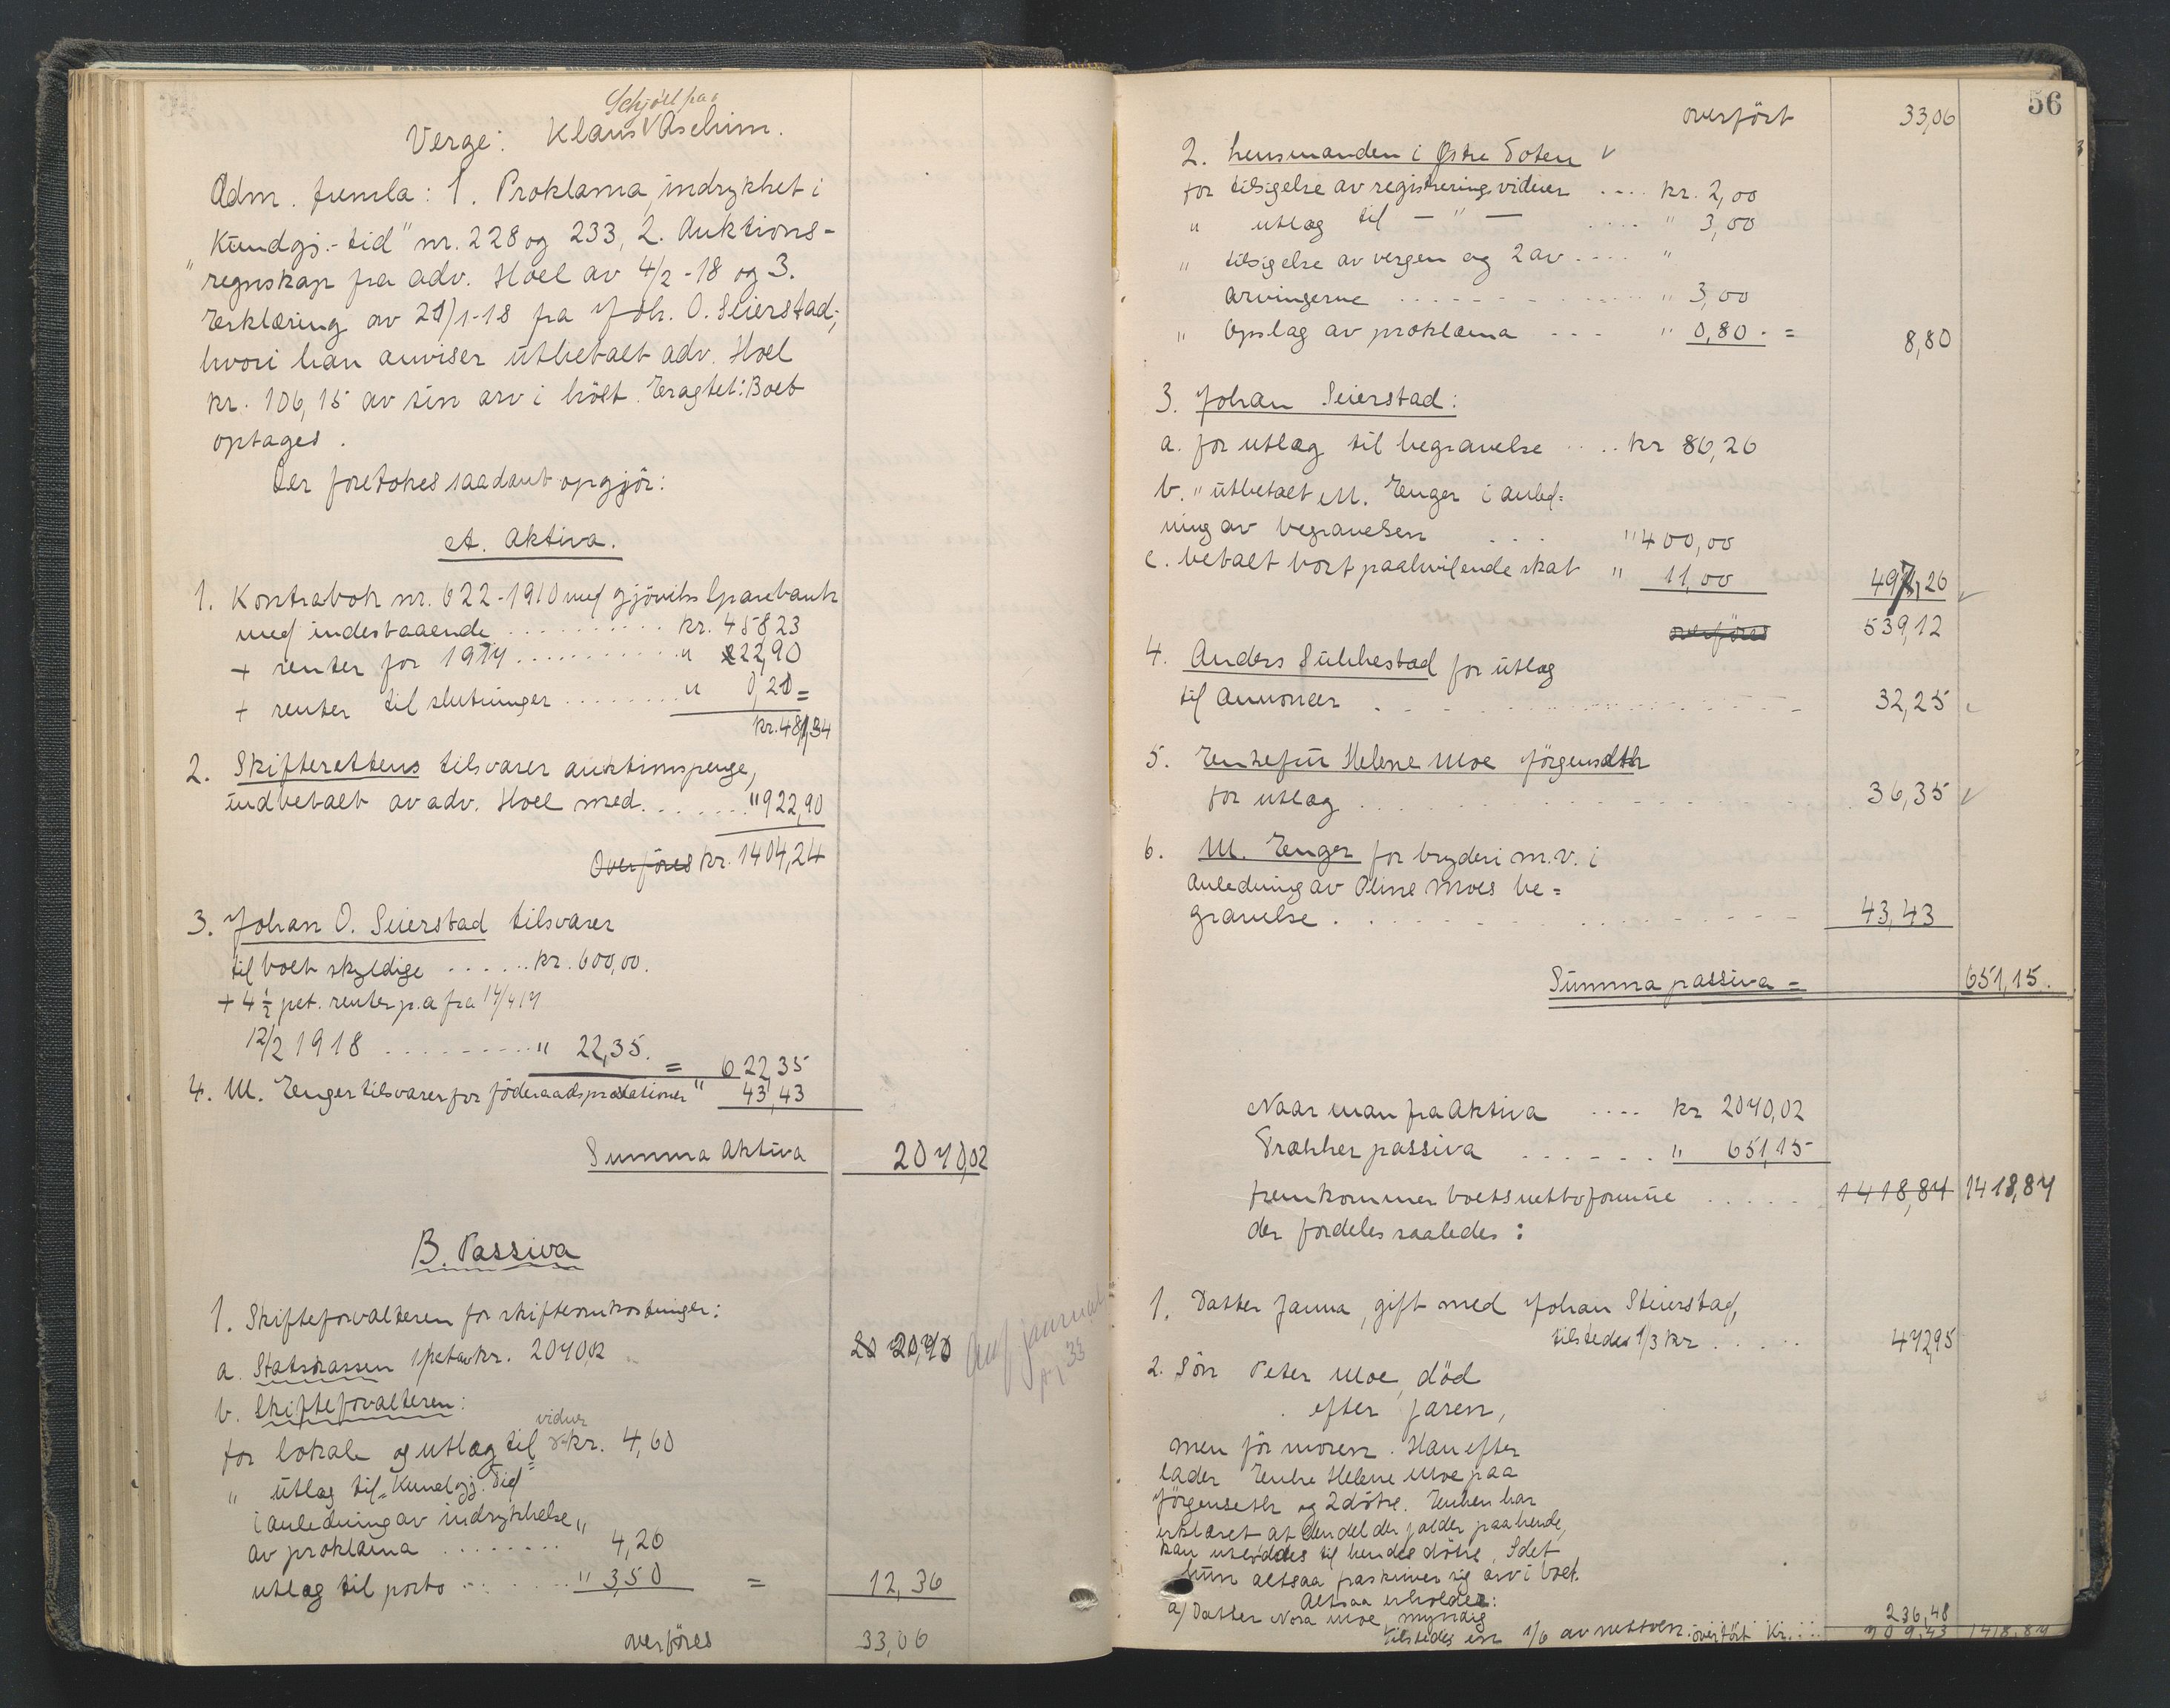 Schjöll paa
Verge: Klaus V Aschim.
Adm. fremla: 1. Proklama, indrykket i
"Kundgj.-tid" nr. 228 og 233, 2. Auktions-
regnskap fra adv. Hoel av 4/2-18 og 3.
Erklæring av 21/1-18 fra Joh. O. Seierstad,
hvori han anviser utbetalt adv. Hoel
kr. 106,15 av sin arv i boet. Eragtet: Boet
optages.
Der foretokes saadant opgjör:
A. Aktiva.
1. Kontrabok nr. 622-1910 med Gjöviks Sparebank
med indestaaende .......... kr. 458,23
+ renter for 1917 .......... " 22,90
+ renter til slutninger ........ " 0,21 =
kr. 481,34
2. Skifterettens tilsvarer auktionspenge,
indbetalt av adv. Hoel med ....... " 922,90
Overföres kr. 1404,24
3. Johan O. Seierstad tilsvarer
til boet skyldige ...... kr. 600,00.
+ 4 1/2 pct. renter p.a fra 14/4 17
12/2 1918 ......... " 22,35. = 622,35
4. M. Enger tilsvarer for föderaadspræstationer " 43,43
Summa Aktiva 2070,02
B. Passiva
1. Skifteforvalteren for skifteomkostninger:
a. Statskassen 1 pct av kr. 2070,02 20,70
b. Skifteforvalteren:
vidner
for lokale og utlæg til kr. 4,60
" utlæg til "Kundgj. Tid"
i anledning av indrykkelse "
av proklama ........ 4,26
utlæg til porto ........ " 3,50 = 12,36
overföres 33,06
journal
33
56
overfört 33,06
2. Lensmanden i Østre Toten v
for tilsigelse av registreringsvidner .... kr. 2,00
" utlæg til — " — .... " 3,00
" tilsigelse av vergen og 2 av .... "
arvingerne .............. " 3,00
" Opslag av proklama .... " 0,80 . = 8,80
3. Johan Seierstad:
a. for utlæg til begravelse .... kr 86,26
b. " utbetalt M. Enger i anled=
ning av begravelsen ... " 400,00
c. betalt bort paahvilende skat " 11,00 497,26
overföres 539,12
4. Anders Sukkestad for utlæg
til Annoncer .............. 32,25
5. Enkefru Helene Moe Jörgenseth
for utlæg .............. 36,35 v
6. M. Enger for bryderi m.v. i
Anledning av Oline Moes be=
gravelse .............. 43,43
Summa passiva = 651,15.
Naar man fra Aktiva .... kr 2070,02
Trækker passiva ...... " 651,15
fremkommer boets nettoformue ..... 1418,87 1418,87
der fordeles saaledes:
1. Datter Janna, gift med Johan Seierstad,
tilstedes 1/3 kr ..... 472,95
2. Sön Peter Moe, död
efter faren,
men för moren. Han efter
lader Enke Helene Moe paa
Jörgenseth og 2 dötre. Enken har
erklæret at den del der falder paa hende,
kan utlöddes til hendes dötre, idet
hun altsaa fraskriver sig arv i boet.
Altsaa erholder:
a) Datter Nora Moe, myndig
tilstedes en 1/6 av nettoen. 236,48
overfört kr. ... 709,43 1418,87